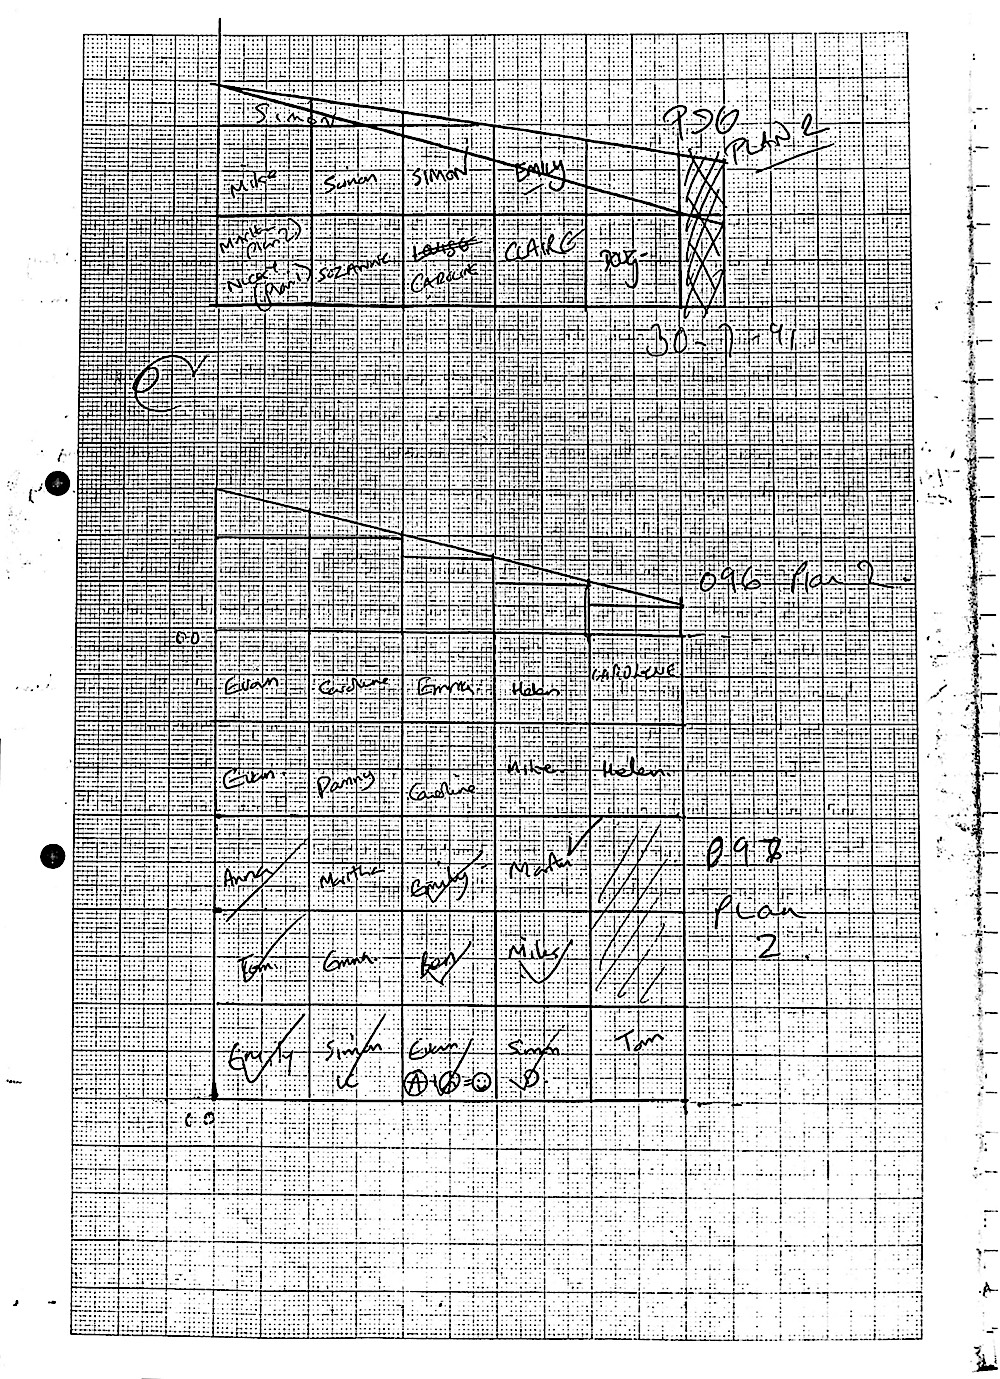 Simon
PSG
PLAN 2
Mike Simon SIMON EMILY
Marie
(plan 2)
CLAIRE
Nicole
(plan 1)
SUZANNE
CAROLINE
DOUG
30-7-91
096 Plan 2
0.0
Evan Caroline Emma Helen CAROLINE
Evan Danny Caroline Mike Helen
Anna Martha Emily Martin
098
Plan
2
Tom Emma Ben Miles
Emily Simon Evan Simon Tom
A+A=
0.0